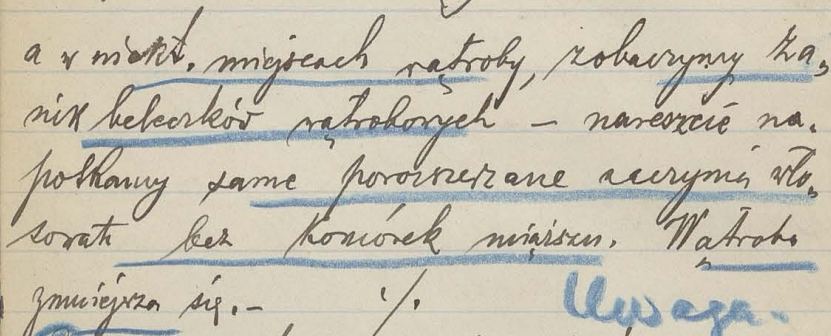 a w niekt. miejscach wątroby, zobaczymy za-
nik beleczków wątrobowych – nareszcie na-
potkamy same porozszerzane naczynia wło-
sowate bez komórek miąższu. Wątroba
zmniejsza się. – ·/.
Uwaga.